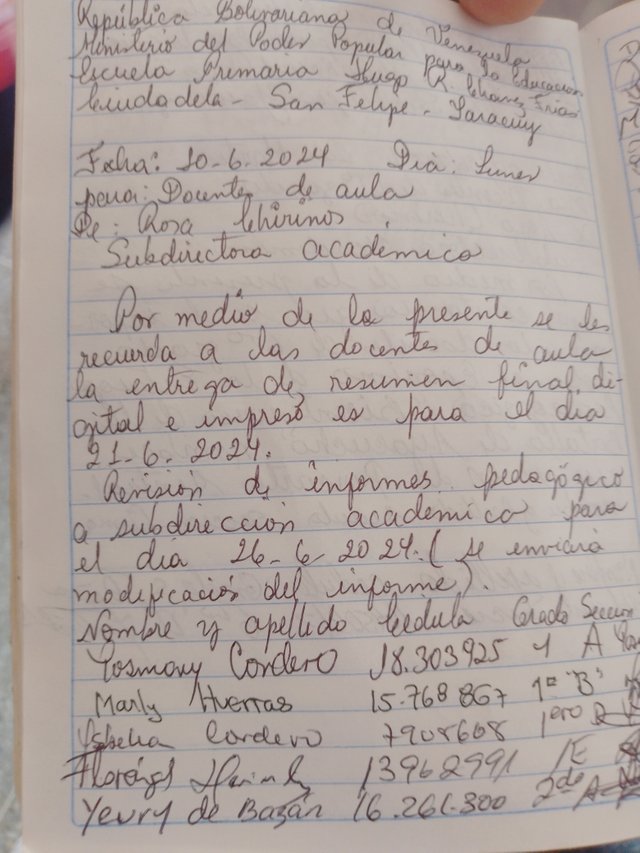 República Bolivariana de Venezuela
Ministerio del Poder Popular para la Educacion
Escuela Primaria Hugo R. Chavez Frias
Ciudadela - San Felipe - Yaracuy
Fecha: 10-6-2024 Dia: Lunes
para: Docentes de aula
De: Rosa Chirinos.
Subdirectora académica
Por medio de la presente se les
recuerda a las docentes de aula
la entrega de resumen final di-
gital e impreso es para el dia
21-6-2024.
Revisión de informes pedagógico
a subdirección académica para
el dia 26-6-2024. (se enviará
modificación del informe).
Nombre y apellido Cedula Grado Seccion
Yosmary Cordero 18.303925 1 A
Marly Huerras 15.768867 1º "B"
Cordero 7908608 1ero
13962991 1E
Yeury de Bazán 16.261.300 2do A